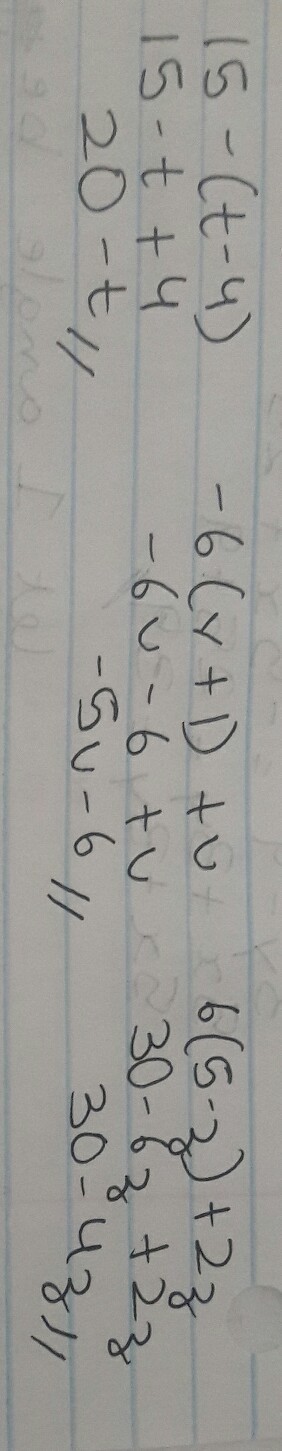 15 - (t - 4)
15 - t + 4
20 - t //
-6(v + 1) + v
-6v - 6 + v
-5v - 6 //
6(5 - z) + 2z
30 - 6z + 2z
30 - 4z //